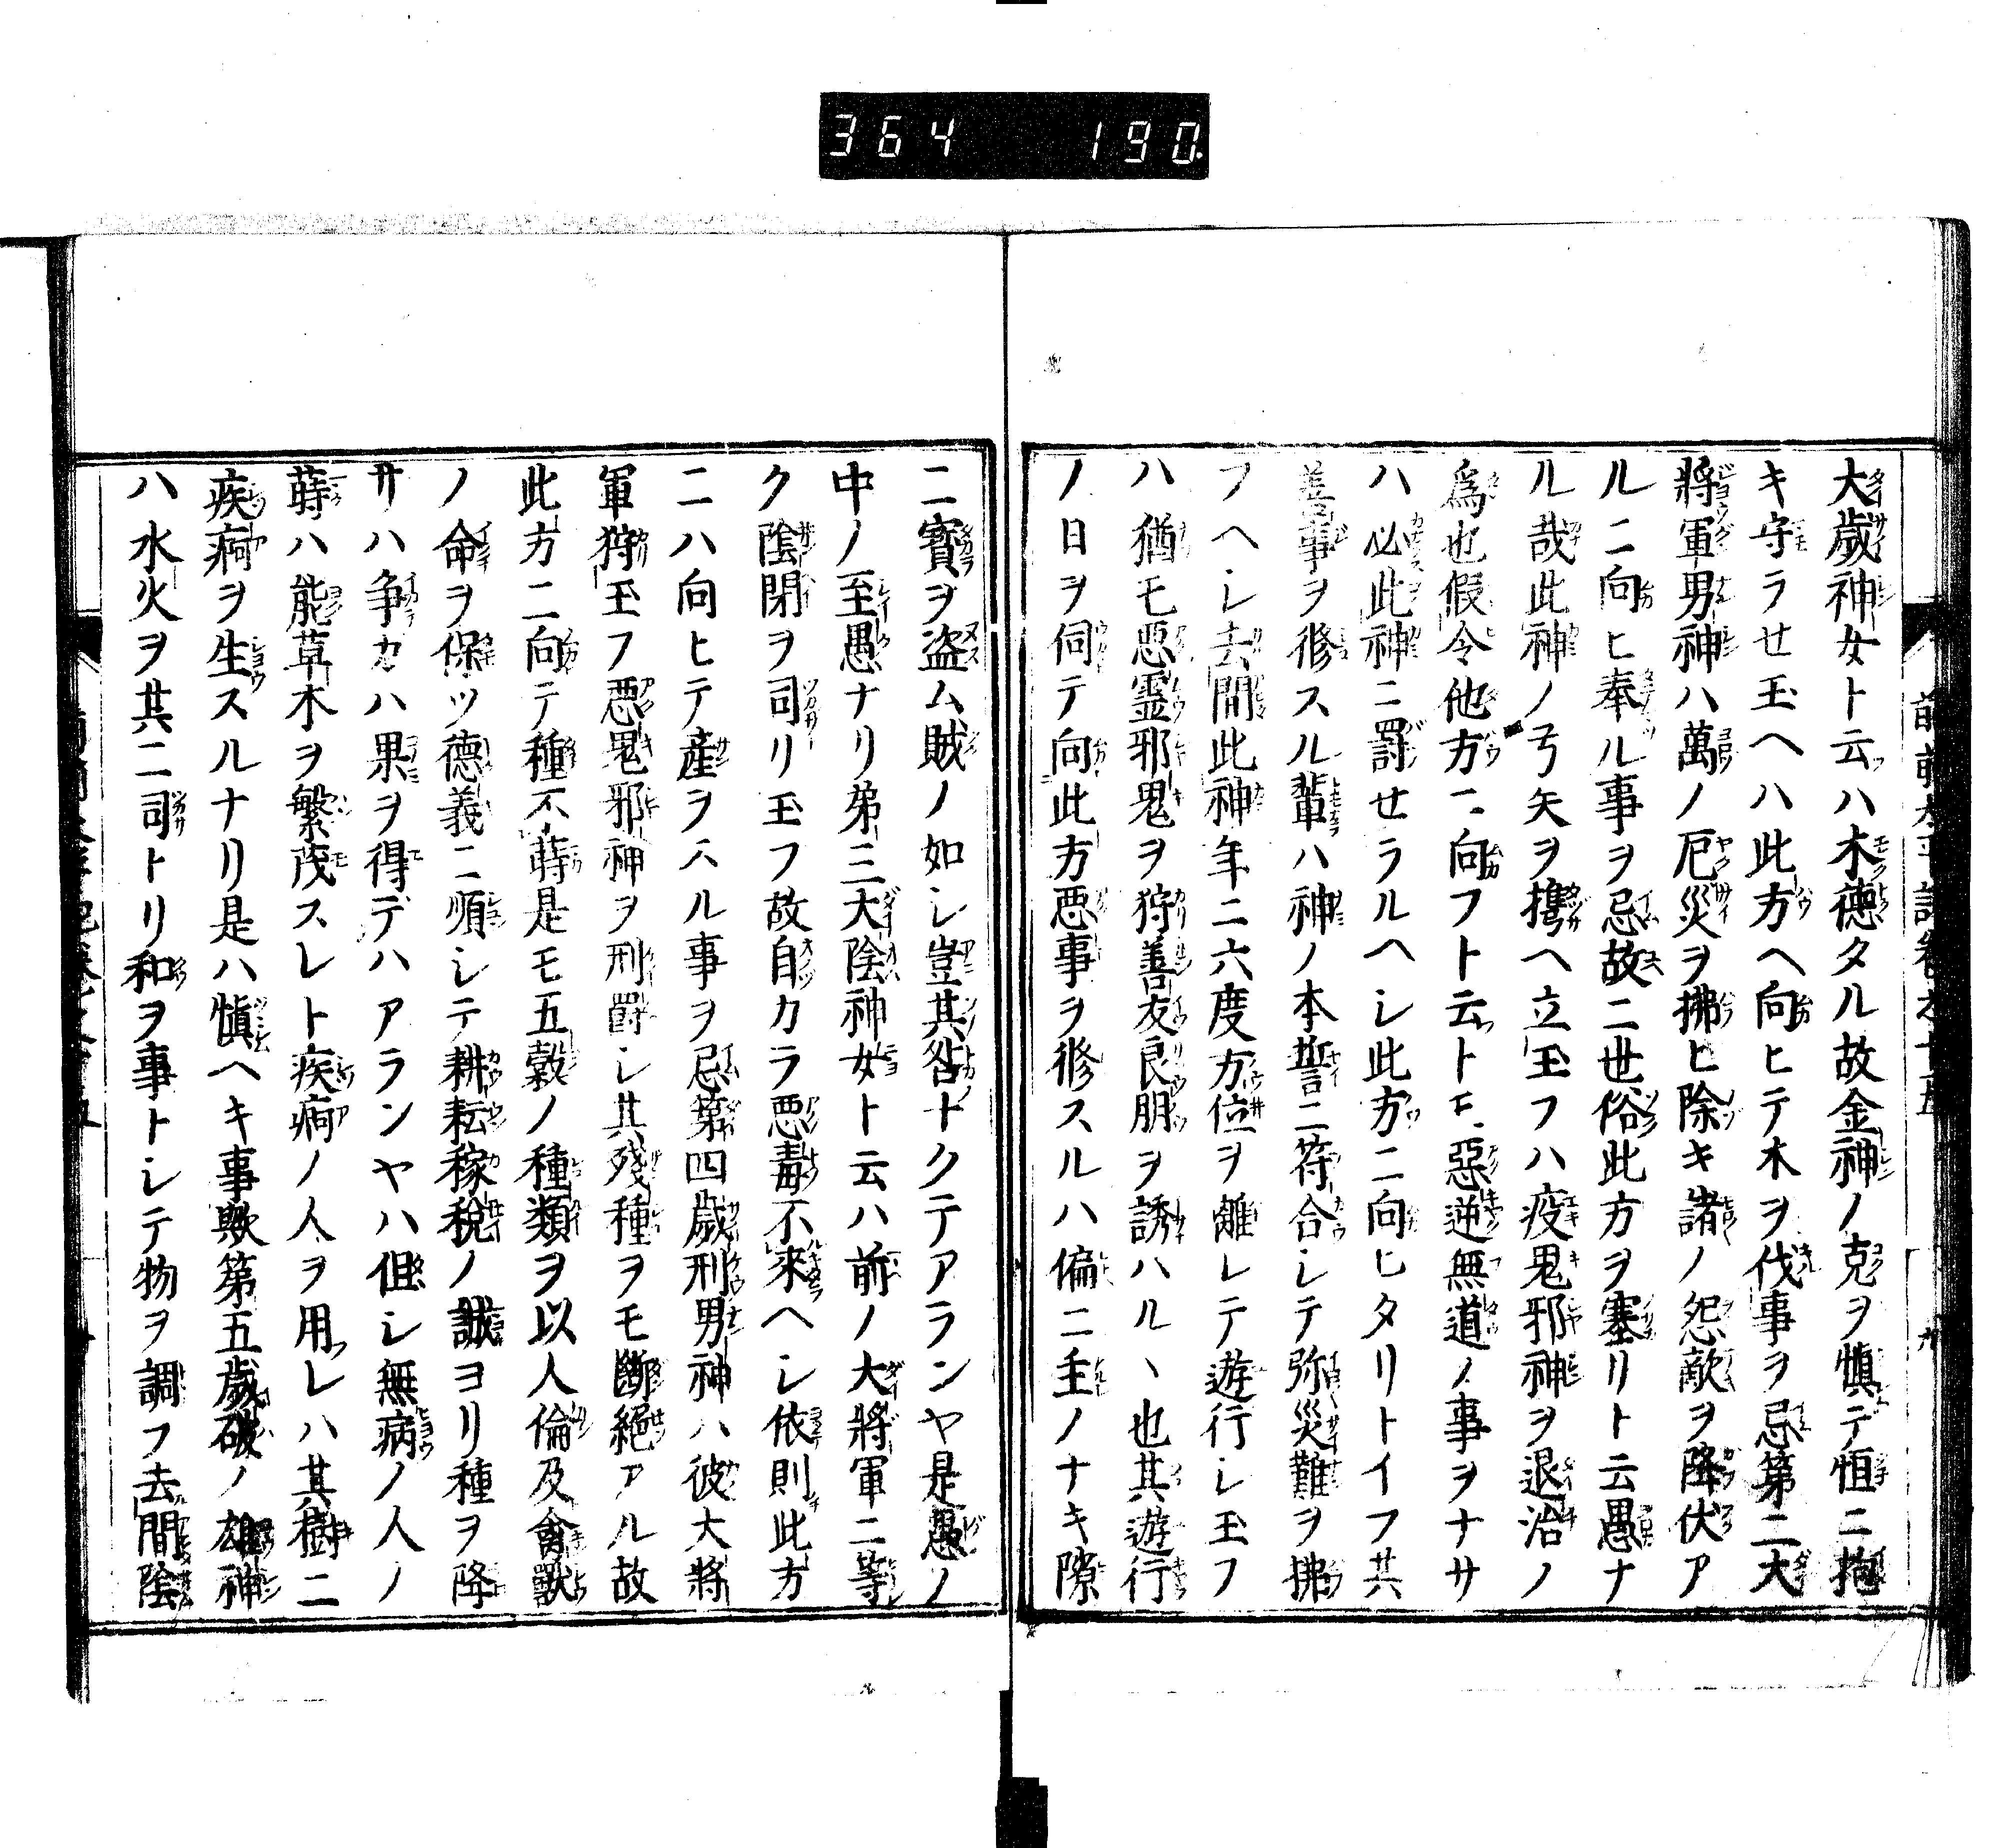 364 190
大歳神女ト云ハ木德タル故金神ノ克ヲ愼テ恒ニ抱
キ守ラせ玉ヘハ此方ヘ向ヒテ木ヲ伐事ヲ忌第二大
將軍男神ハ萬ノ厄災ヲ拂ヒ除キ諸ノ怨敵ヲ降伏ア
ルニ向ヒ奉ル事ヲ忌故ニ世俗此方ヲ塞リト云愚ナ
ル哉此神ノ弓矢ヲ携ヘ立玉フハ疫鬼邪神ヲ退治ノ
爲也假令他方ニ向フト云トモ惡逆無道ノ事ヲナサ
ハ必此神ニ罰せラルヘシ此方ニ向ヒタリトイフ共
善事ヲ修スル輩ハ神ノ本誓ニ符合シテ弥災難ヲ拂
フヘシ去間此神年ニ六度方位ヲ離レテ遊行シ玉フ
ハ猶モ惡霊邪鬼ヲ狩善友良朋ヲ誘ハルヽ也其遊行
ノ日ヲ伺テ向此方惡事ヲ修スルハ偏ニ主ノナキ隙
ニ寳ヲ盗ム賊ノ如シ豈其咎ナクテアランヤ是愚ノ
中ノ至愚ナリ弟三大陰神女ト云ハ前ノ大將軍ニ等
ク陰閉ヲ司リ玉フ故自カラ惡毒不来ヘシ依則此方
ニハ向ヒテ産ヲスル事ヲ忌第四歳刑男神ハ彼大將
軍狩玉フ惡鬼邪神ヲ刑罸シ其殘種ヲモ斷絕アル故
此方ニ向テ種不蒔是モ五穀ノ種類ヲ以人倫及禽獸
ノ命ヲ保ツ德義ニ順シテ耕耘稼税ノ誠ヨリ種ヲ降
サハ争カハ果ヲ得デハアランヤハ但シ無病ノ人ノ
蒔ハ能草木ヲ繁茂スレト疾痾ノ人ヲ用レハ其樹ニ
疾痾ヲ生スルナリ是ハ愼ヘキ事歟第五歳破ノ雄神
ハ水火ヲ其ニ司トリ和ヲ事トシテ物ヲ調フ去間陰